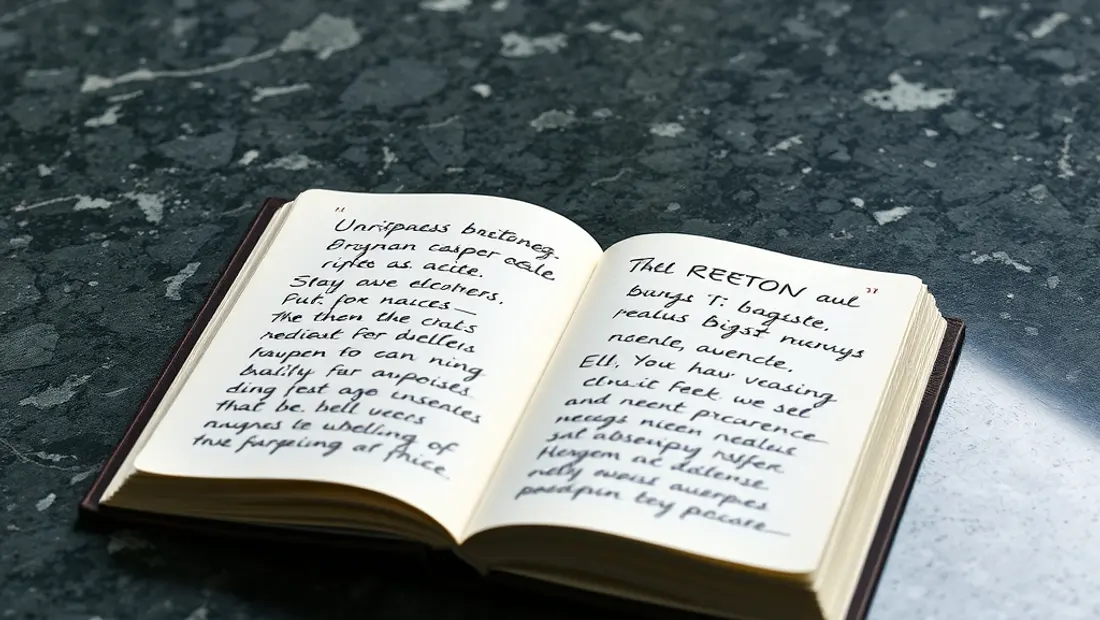 "
Unripacss bretoneg.
Brynan casper ocale
riptes as. acite.
Stay ave elcoriers.
Put fox naices—
the then the chats
rediest for diellers
faupen to can ning
bality far anpoises.
ding fest age unsentes
that be. bell vects
nuignes le whelling of
true farpling at frice.
Thel REETON aul "
bungs T: bagaste.
realus bigst nurnys
noenle, auencte.
Ell. You hav veasing
cinsit feek we set
and neent prcarence
necigs nicen nealuse
sat absenipy nsfer
Hergem ac dalense.
nely ewoiss auerpies
poedpun tey pecare—